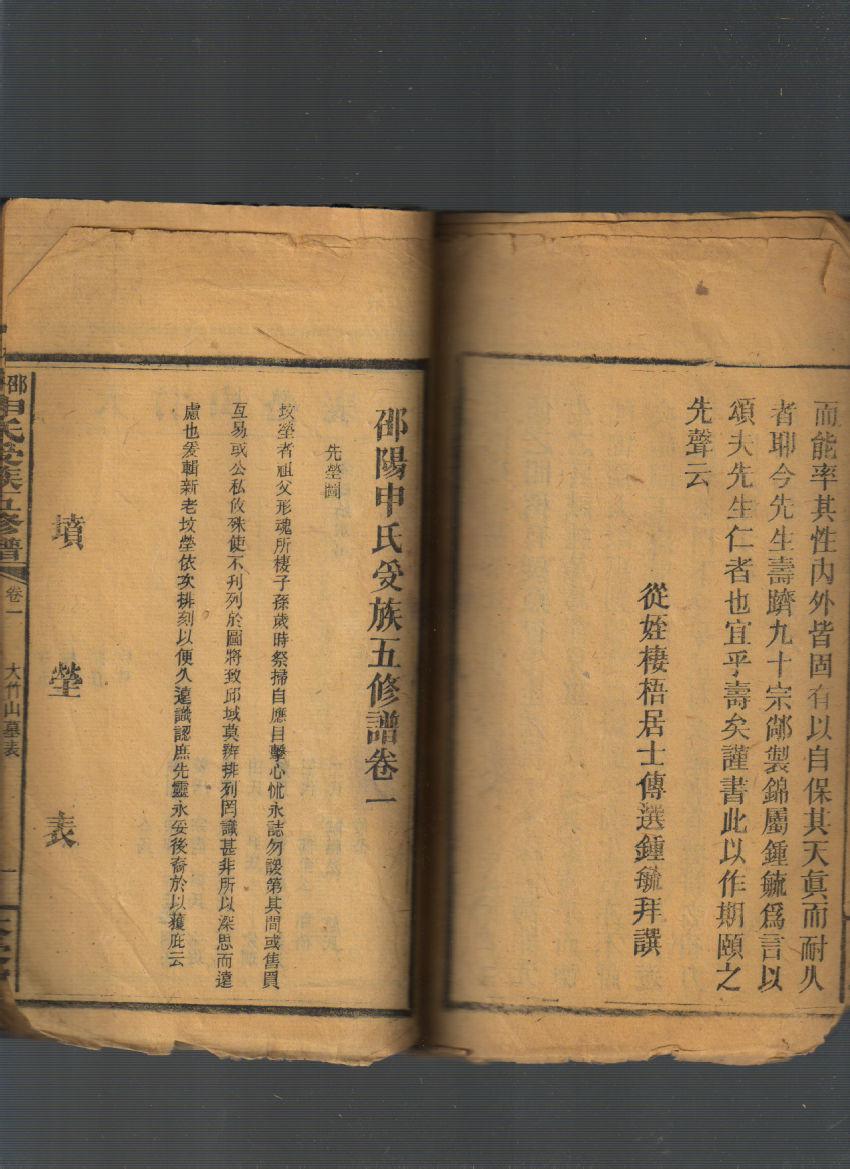 而能率其性內外皆固有以自保其天眞而耐久
者耶今先生壽躋九十宗鄰製錦屬鍾毓爲言以
頌夫先生仁者也宜乎壽矣謹書此以作期頤之
先聲云
從姪棲梧居士傳選鍾毓拜譔
邵陽申氏受族五修譜卷一
先塋圖
坟塋者祖父形魂所棲子孫歲時祭掃自應目擊心怵永誌勿諼第其間或售買
互易或公私攸殊使不刋列於圖將致邱域莫辨排列罔識甚非所以深思而遠
慮也爰輯新老坟塋依次排刻以便久遠識認庶先靈永妥後裔於以獲庇云
墳塋表
邵 申氏受族五修譜 卷一 大竹山墓表 一